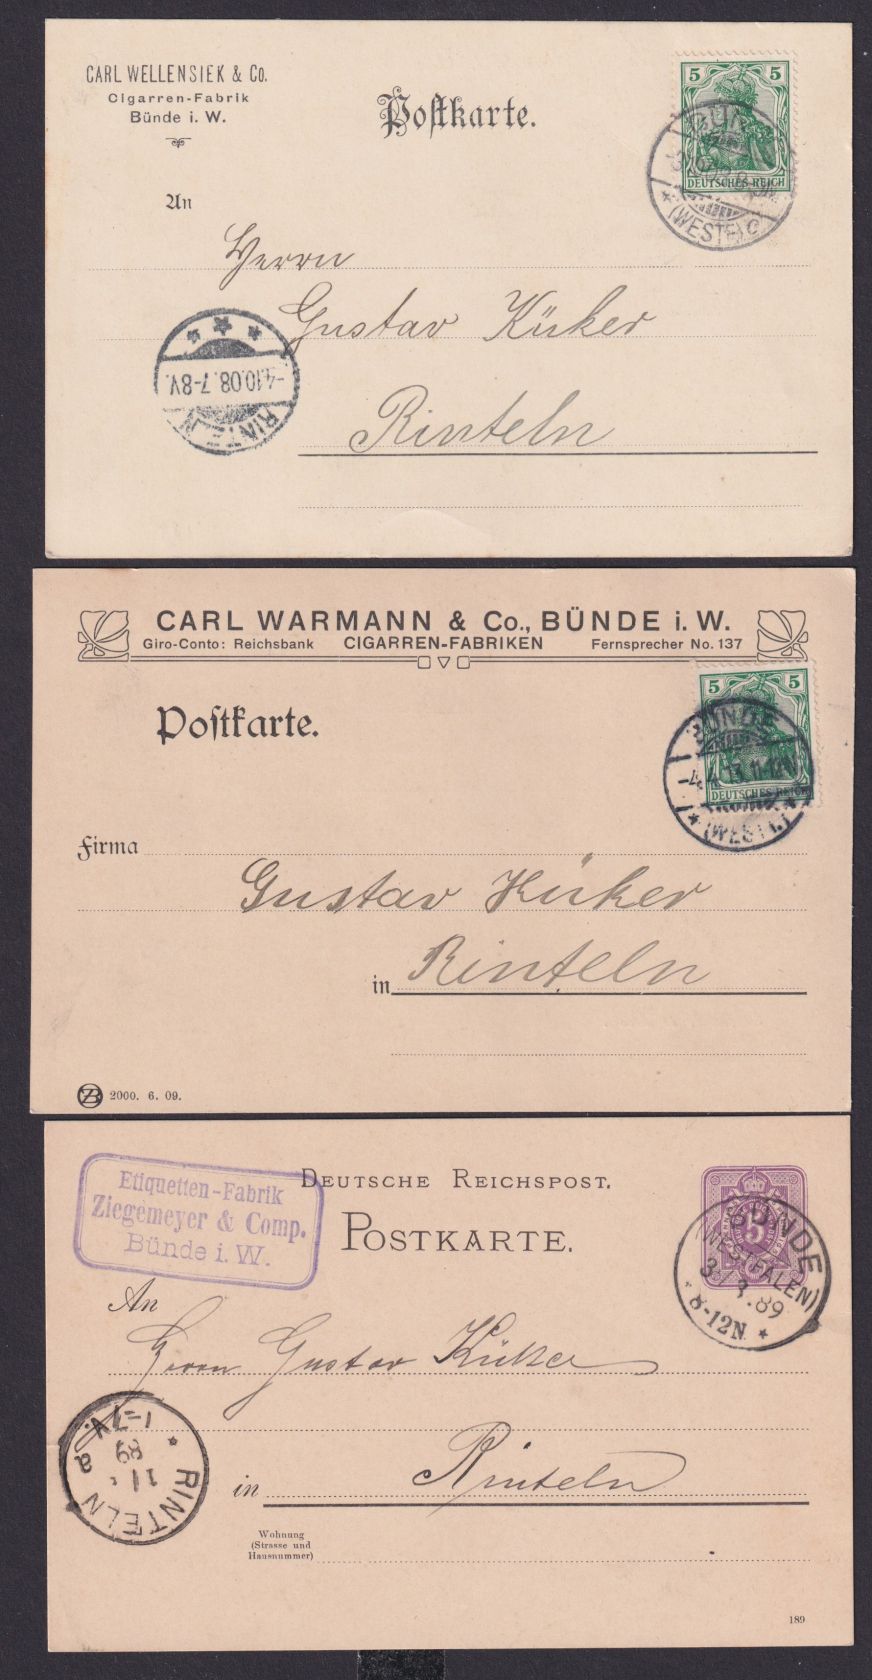 CARL WELLENSIEK & Co.
Cigarren-Fabrik
Bünde i. W.
Postkarte.
5 5
DEUTSCHES REICH
(WESTF.)
An
Herrn
Gustav Küker
Rinteln
-4.10.08.7-8V.
RINTELN
CARL WARMANN & Co., BÜNDE i. W.
Giro-Conto: Reichsbank CIGARREN-FABRIKEN Fernsprecher No. 137
Postkarte.
5 5
DEUTSCHES REICH
BÜNDE
-4.4.13.11-12V.
(WESTF.)
Firma
Gustav Küker
in Rinteln
2000. 6. 09.
Etiquetten-Fabrik
Ziegemeyer & Comp.
Bünde i. W.
DEUTSCHE REICHSPOST.
POSTKARTE.
5
BÜNDE
(WESTFALEN)
89
8-12N.
An
Herrn Gustav Küker
in Rinteln
RINTELN
a
89
1-7V.
Wohnung
(Strasse und
Hausnummer)
189